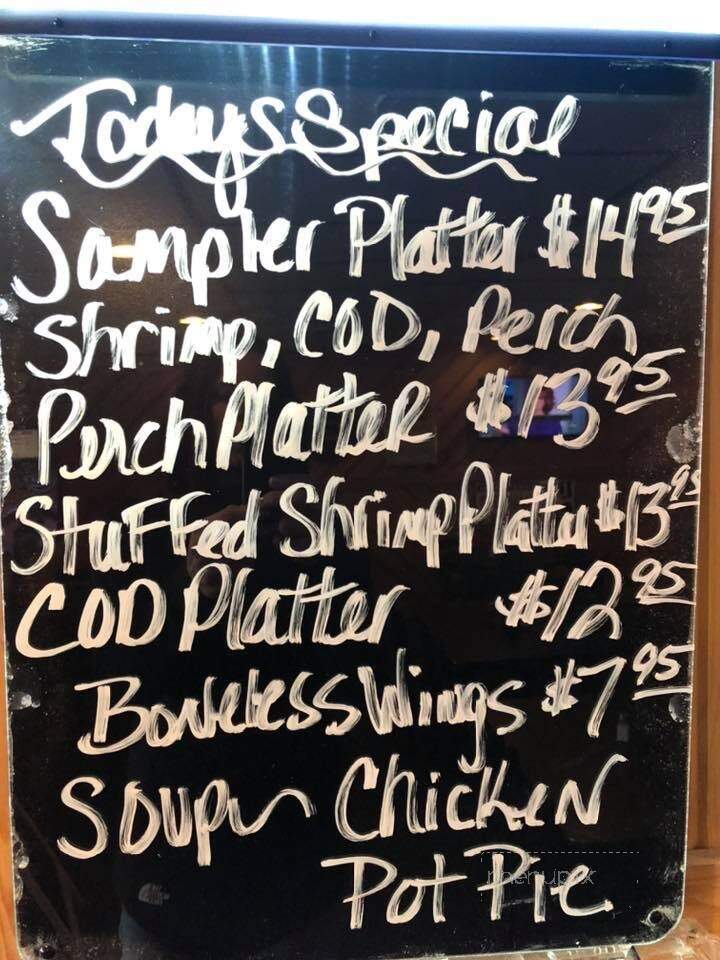 Todays Special
Sampler Platter $14.95
Shrimp, COD, Perch
Perch Platter $13.95
Stuffed Shrimp Platter $13.95
COD Platter $12.95
Boneless Wings $7.95
Soup~ Chicken
Pot Pie